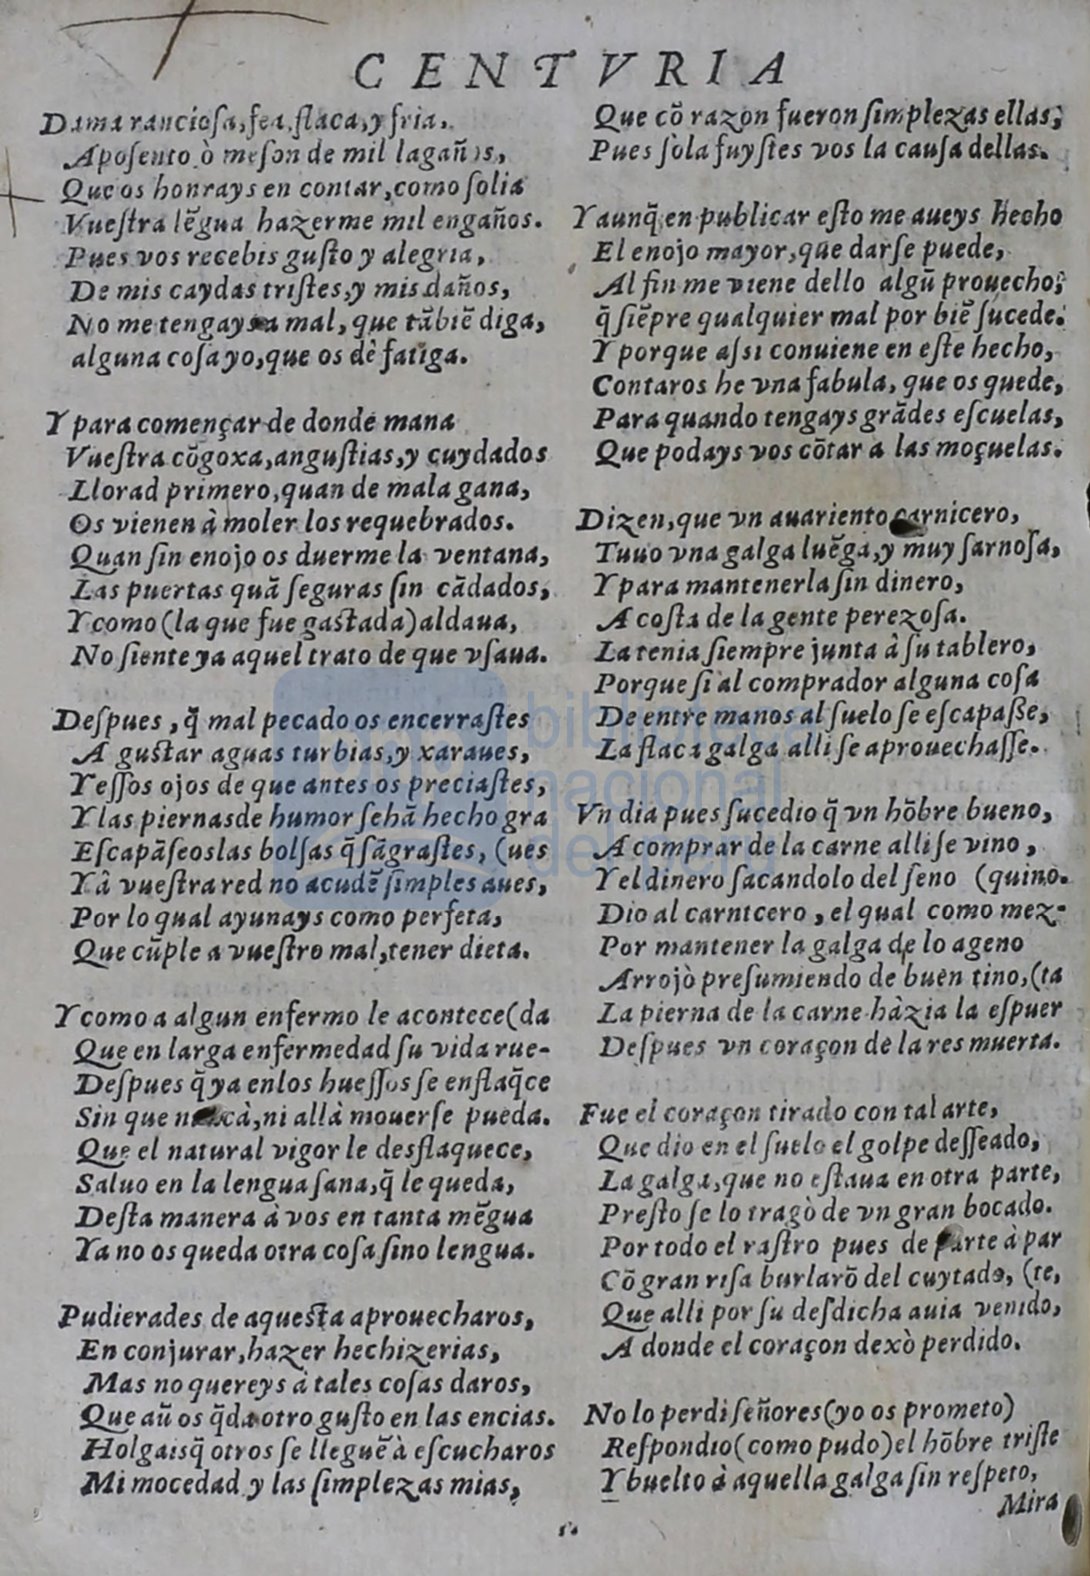 CENTVRIA
Dama ranciosa, fea, flaca, y fria,
Aposento ò meson de mil lagañas,
Que os honrays en contar, como solia
Vuestra lẽgua hazerme mil engaños.
Pues vos recebis gusto y alegria,
De mis caydas tristes, y mis daños,
No me tengays a mal, que tãbiẽ diga,
alguna cosa yo, que os dè fatiga.
Y para començar de donde mana
Vuestra cõgoxa, angustias, y cuydados
Llorad primero, quan de mala gana,
Os vienen à moler los requebrados.
Quan sin enojo os duerme la ventana,
Las puertas quã seguras sin cãdados,
Y como (la que fue gastada) aldaua,
No siente ya aquel trato de que vsaua.
Despues, q̃ mal pecado os encerrastes
A gustar aguas turbias, y xaraues,
Y essos ojos de que antes os preciastes,
Y las piernas de humor sehã hecho gra
Escapãseos las bolsas q̃ sãgrastes, (ues
Y â vuestra red no acudẽ simples aues,
Por lo qual ayunays como perfeta,
Que cũple a vuestro mal, tener dieta.
Y como a algun enfermo le acontece (da
Que en larga enfermedad su vida rue-
Despues q̃ ya en los huessos se enflaq̃ce
Sin que acà, ni allà mouerse pueda.
Que el natural vigor le desflaquece,
Saluo en la lengua sana, q̃ le queda,
Desta manera à vos en tanta mẽgua
Ya no os queda otra cosa sino lengua.
Pudierades de aquesta aprouecharos,
En conjurar, hazer hechizerias,
Mas no quereys à tales cosas daros,
Que aũ os q̃da otro gusto en las encias.
Holgais q̃ otros se lleguẽ à escucharos
Mi mocedad y las simplezas mias,
Que cõ razon fueron simplezas ellas;
Pues sòla fuystes vos la causa dellas.
Y aunq̃ en publicar esto me aueys hecho
El enojo mayor, que darse puede,
Al fin me viene dello algũ prouecho;
q̃ siẽpre qualquier mal por biẽ sucede:
Y porque assi conuiene en este hecho,
Contaros he vna fabula, que os quede,
Para quando tengays grãdes escuelas,
Que podays vos cõtar a las moçuelas.
Dizen, que vn auariento carnicero,
Tuuo vna galga luẽga, y muy sarnosa,
Y para mantenerla sin dinero,
A costa de la gente perezosa.
La tenia siempre junta à su tablero,
Porque si al comprador alguna cosa
De entre manos al suelo se escapasse,
La flaca galga alli se aprouechasse.
Vn dia pues sucedio q̃ vn hõbre bueno,
A comprar de la carne alli se vino,
Y el dinero sacandolo del seno (quino.
Dio al carnicero, el qual como mez-
Por mantener la galga de lo ageno
Arrojò presumiendo de buen tino, (ta
La pierna de la carne hàzia la espuer
Despues vn coraçon de la res muerta.
Fue el coraçon tirado con tal arte,
Que dio en el suelo el golpe desseado,
La galga, que no estaua en otra parte,
Presto se lo tragò de vn gran bocado.
Por todo el rastro pues de parte à par
Cõ gran risa burlarõ del cuytado, (te,
Que alli por su desdicha auia venido,
A donde el coraçon dexò perdido.
No lo perdi señores (yo os prometo)
Respondio (como pudo) el hõbre triste
Y buelto à aquella galga sin respeto,
Mira
biblioteca
nacional
del perú